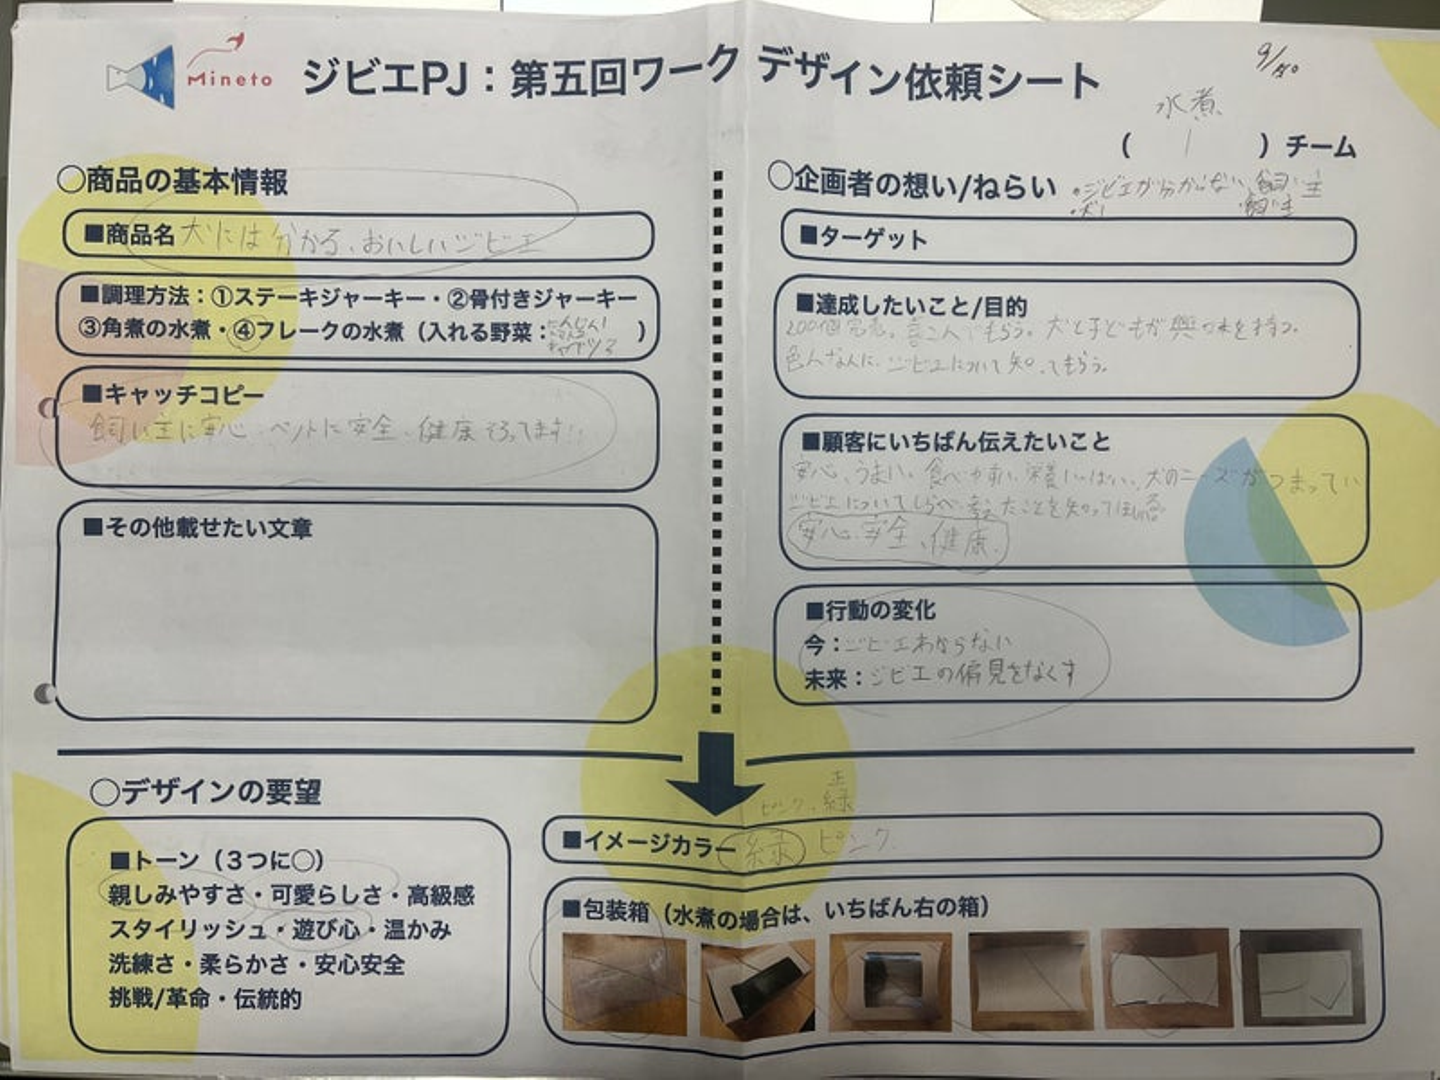 Mineto
ジビエPJ:第五回ワーク デザイン依頼シート
水煮
( 1 )チーム
○商品の基本情報
■商品名 犬には分かる、おいしいジビエ
■調理方法:①ステーキジャーキー・②骨付きジャーキー
③角煮の水煮・④フレークの水煮(入れる野菜:にんじん )
キャベツ
■キャッチコピー
飼い主に安心、ペットに安全、健康そろってます!!
■その他載せたい文章
○企画者の想い/ねらい
・ジビエが分からない飼い主
・犬 飼い主
■ターゲット
■達成したいこと/目的
200個完売。喜こんでもらう。犬と子どもが興味を持つ。
色んな人に、ジビエについて知ってもらう。
■顧客にいちばん伝えたいこと
安心、うまい、食べやすい、栄養いっぱい、犬のニーズがつまってい
ジビエについてしらべ、考えたことを知ってほしい
安心、安全、健康
■行動の変化
今:ジビエわからない
未来:ジビエの偏見をなくす
○デザインの要望
■トーン(3つに○)
親しみやすさ・可愛らしさ・高級感
スタイリッシュ・遊び心・温かみ
洗練さ・柔らかさ・安心安全
挑戦/革命・伝統的
ピンク、緑
■イメージカラー 緑 ピンク
■包装箱(水煮の場合は、いちばん右の箱)